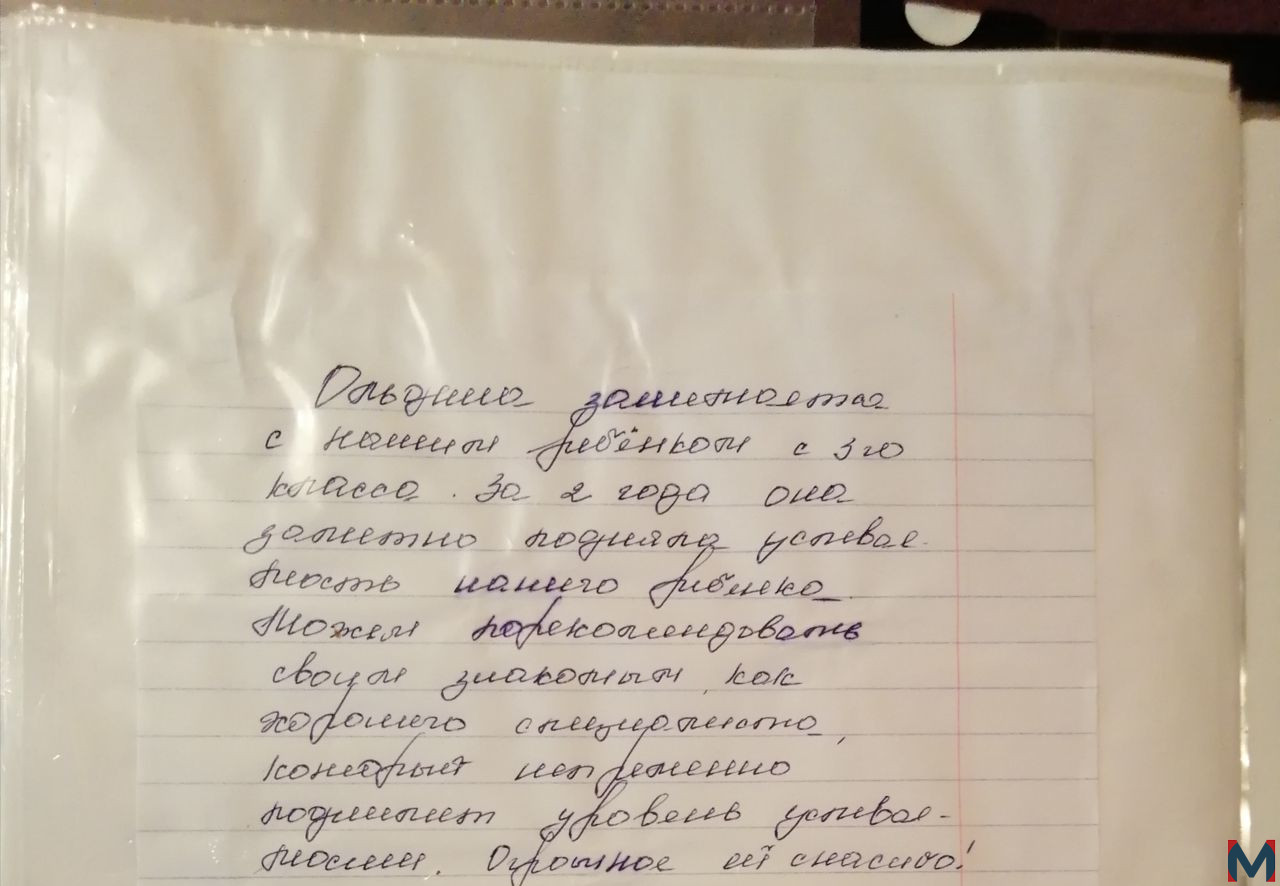 Эльдина занимается
с нашим ребёнком с 3 го
класса. За 2 года она
заметно подняла успевае-
мость нашего ребенка.
Можем порекомендовать
своим знакомым, как
хорошего специалиста,
который непременно
поднимет уровень успевае-
мости. Огромное ей спасибо!
M